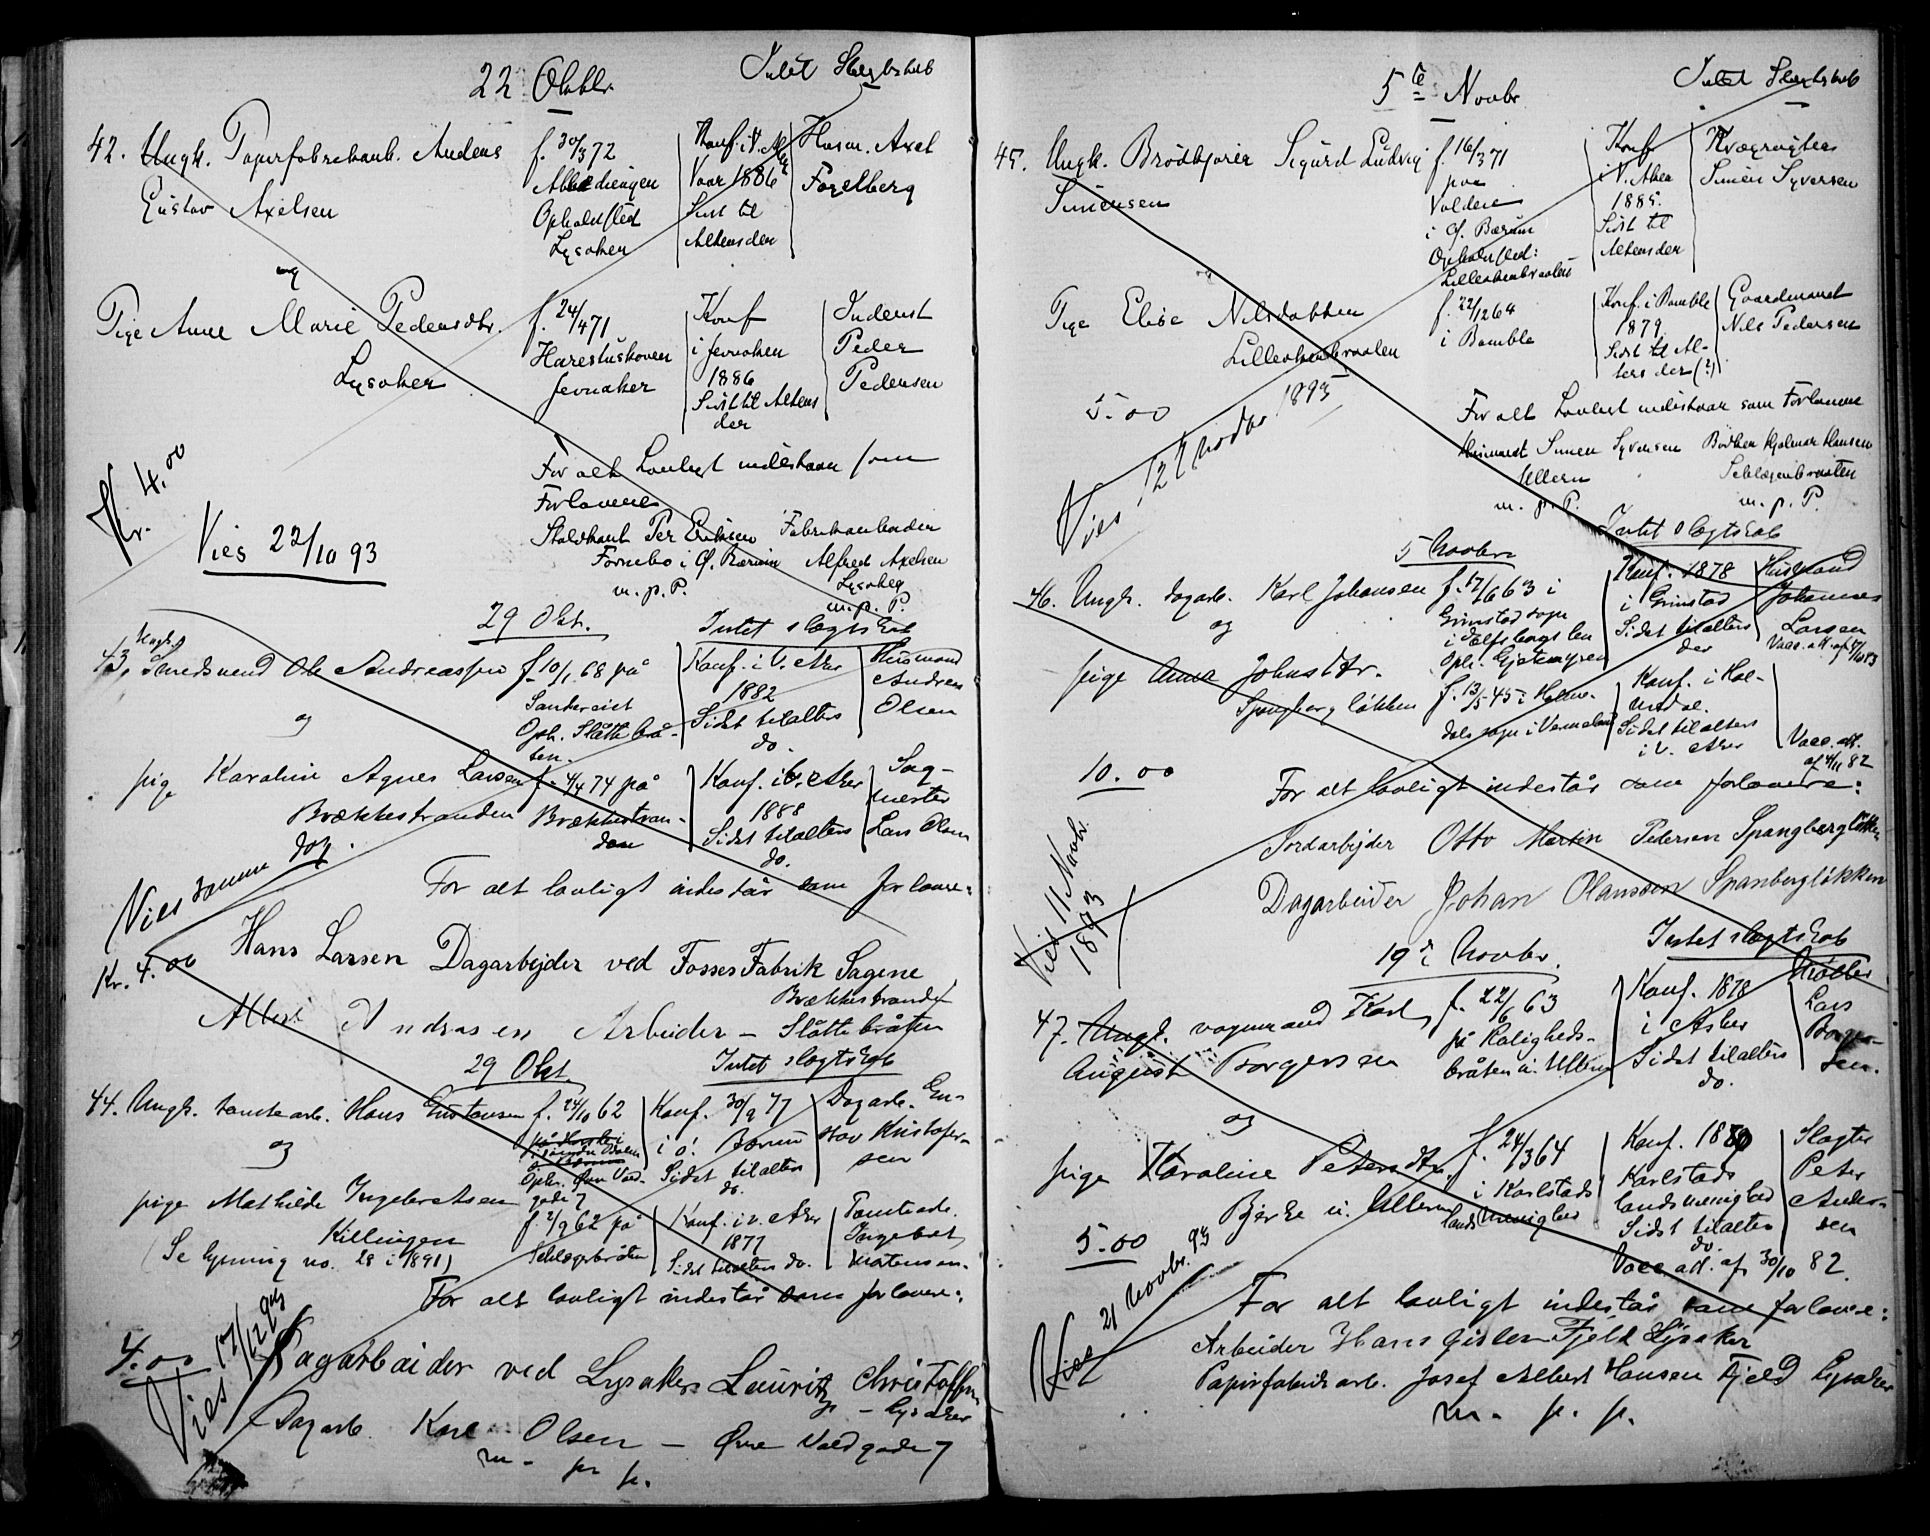 22 Oktbr. Intet Slegtskab
42. Ungk. Papirfabrikarb. Anders f. 30/3 72 Konf. i V. Aker Husm. Axel
Gustav Axelsen Vaar 1886 Fogelberg
Opholdssted Sidst til
Lysaker Altens der
og
Pige Anne Marie Pedersdtr. f. 24/4 71 Konf Inderst
Lysaker Harestuskoven i Jevnaker Peder
Jevnaker 1886 Pedersen
Sidst til Altens
der
Kr. 4.00
For alt Lovligt indestaar som
Forlovere
Viet 22/10 93
Staldkarl Per Eriksen Fabrikarbeider
Fornebo i Ø. Bærum Alfred Axelsen
Lysaker
m. p. P. m. p. P.
29 Okt. Intet slægtskab
43. Ungk. Smedsvend Ole Andreassen f. 10/1 68 på Konf. i V. Aker Husmand
1882 Andreas
og Oph. Slåttebrå- Sidst tilalters Olsen
ten. do.
pige Karoline Agnes Larsen f. 4/4 74 på Konf. i V. Aker Sag-
Brækkestranden Brækkestran- 1888 mester
den Sidst tilalters Lars Olsen
do.
Viet samme dag.
For alt lovligt indestår som forlovere:
Kr. 4.00 Hans Larsen Dagarbejder ved Fosses Fabrik Sagene
Brækkestrand
Albert Andrasen Arbeider – Slåttebråten
29 Okt. Intet slægtskab
44. Ungk. tomtearb. Hans Gustavsen f. 24/10 62 Konf. 30/9 77 Dagarb. Gu-
og i Ø. Bærum stav Kristofer-
Oph. Øvre Vold- Sidst tilalters sen
gade 7 do.
pige Mathilde Ingebretsen f. 2/9 62 på Konf. i V. Aker Tomtearb.
Killingen 1877 Ingebret
(Se lysning no. 28 i 1891) Sidst tilalters do. Mortensen.
For alt lovligt indestår som forlovere:
4.00 Viet 17/12 93
Dagarbeider ved Lysaker Lauritz Christoffersen
– Lysaker
Dagarb. Karl Olsen – Øvre Voldgade 7
m. p. p.
5te Novbr Intet Slegtskab
45. Ungk. Brödkjører Sigurd Ludvig f. 16/3 71 Konf Kvægrøgter
Simensen paa i V. Aker Simen Syversen
Volden 1885.
i Ø. Bærum Sidst til
Opholdssted: Altens der
Lilleakerbraaten
og
Pige Elise Nilsdatter f. 22/12 64 Konf. i Bamble Gaardmand
Lilleakerbraaten i Bamble 1879 Nils Pedersen
Sidst til Al-
ters der (?)
5.00
Viet 12te Novbr 1893
For alt Lovligt indestaar som Forlovere
Husmand Simen Syversen Bödker Hjalmar Hansen
Ullern Sehlægenbraaten
m. p. P. m. p. P.
5 Novbr. Intet slægtskab
46. Ungk. dagarb. Karl Johansen f. 17/6 63 i Konf. 1878 Husmand
og Grimstad sogn i Grimstad Johannes
i Elfsborgs len Sidst tilalters Larsen
Oph. Gjetemyren der
pige Anna Johnsdtr. f. 13/5 45 i Holme- Konf. i Hol-
Spangbergløkken dals sogn i Vermeland medal.
Sidst tilalters
i V. Aker Vacc. att.
af 4/11 82
10.00
For alt lovligt indestår som forlovere:
Viet 11 Novbr. 1893
Jordarbejder Otto Martin Pedersen Spangbergløkken
Dagarbeider Johan Olanssen Spanbergløkken
19de Novbr. Intet slægtskab
47. Ungk. vognmand Karl f. 22/6 63 Konf. 1878
August Borgersen på Roligheds- i Asker Lars
bråten u. Ullern Sidst tilalters Borger-
do. sen.
og
pige Karoline Petersdtr. f. 24/3 64 Konf. 1880 Slagter
Bjerke u. Ullern i Karlstads Karlstads Peter
landsmenighed landsmenighed Anders-
Sidst tilalters sen
do.
5.00 Vacc. att. af 30/10 82.
Viet 21 Novbr. 93
For alt lovligt indestår som forlovere:
Arbeider Hans Gislesen Fjeld Lysaker
Papirfabrikarb. Josef Albert Hansen Fjeld Lysaker
m. p. p.